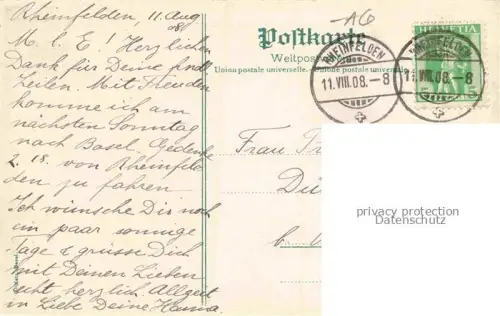 Rheinfelden, 11. Aug
08.
M. l. E! Herzlichen
Dank für Deine frdl.
Zeilen. Mit Freuden
komme ich am
nächsten Sonntag
nach Basel. Gedenke
2.18. von Rheinfel-
den zu fahren
Ich wünsche Dir noch
ein paar sonnige
Tage & grüsse Dich
mit Deinen Lieben
recht herzlich. Allzeit
in Liebe Deine Hanna.
A6
Postkarte
Weltpost
Union postale universelle.
postale universelle
RHEINFELDEN
11.VIII.08.–8
RHEINFELDEN
11.VIII.08.–8
HELVETIA
5
5
Frau
Dü
b.
privacy protection
Datenschutz